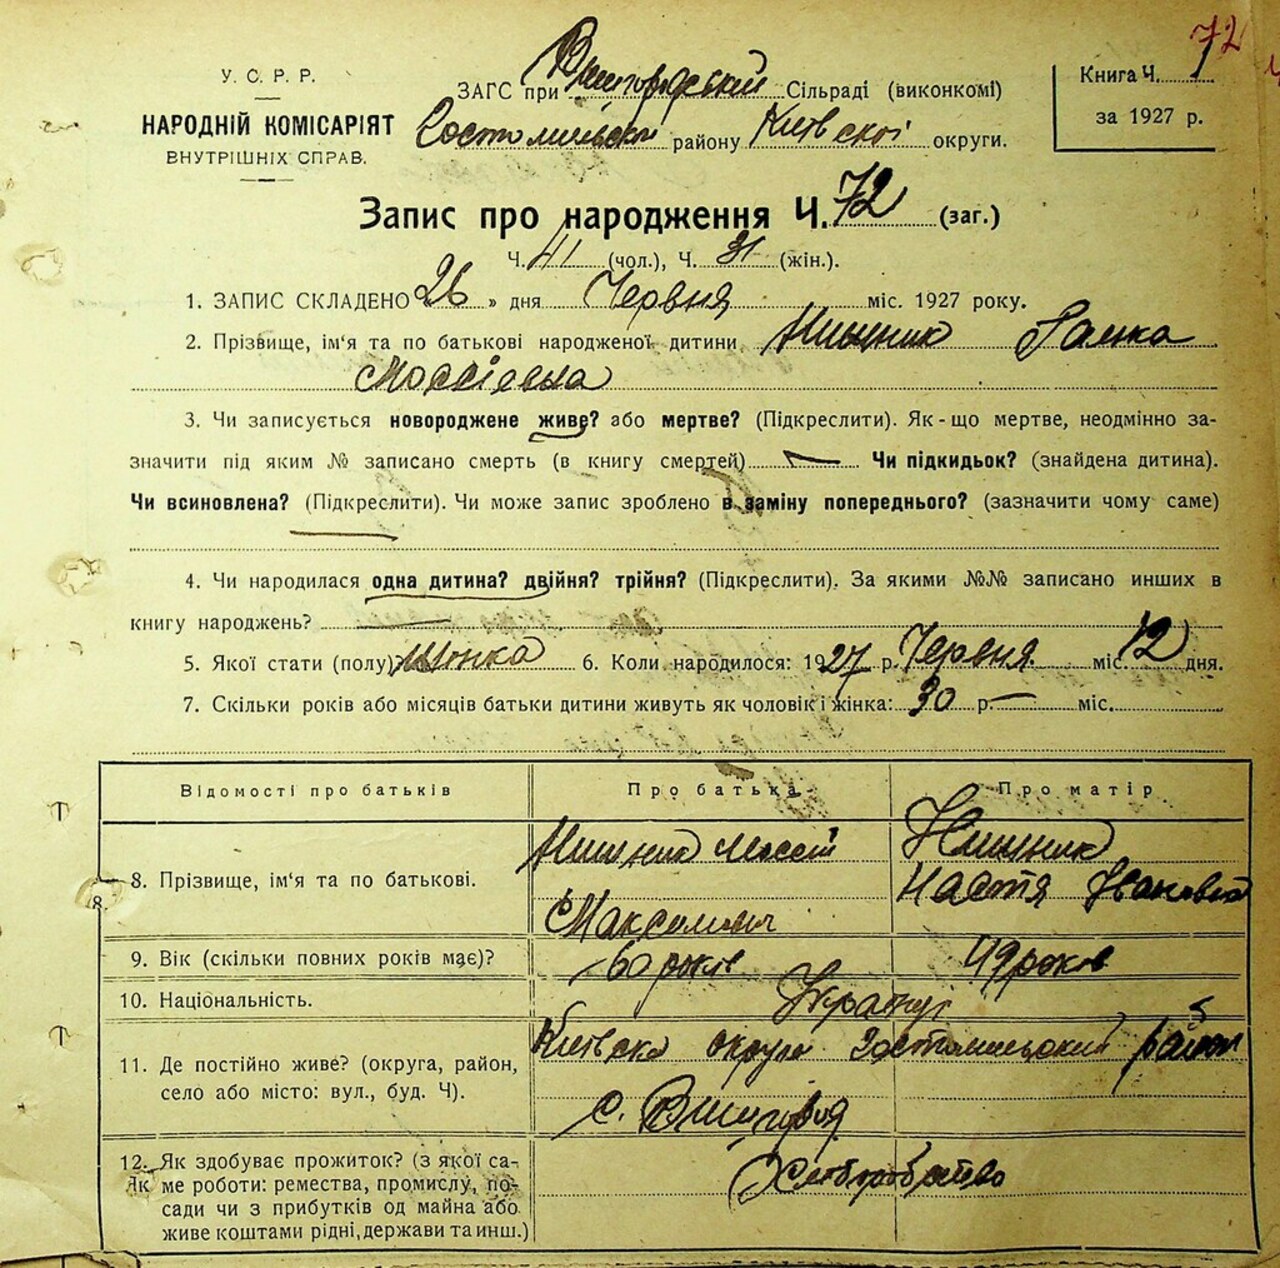 72
У. С. Р. Р.
НАРОДНІЙ КОМІСАРІЯТ
ВНУТРІШНІХ СПРАВ.
ЗАГС при Вишгородський Сільраді (виконкомі)
Гостомльской району Київскої округи.
Книга Ч. 1
за 1927 р.
Запис про народження Ч. 72 (заг.)
Ч. 41 (чол.), Ч. 31 (жін.).
1. ЗАПИС СКЛАДЕНО 26 » дня Червня міс. 1927 року.
2. Прізвище, ім'я та по батькові народженої дитини
3. Чи записується новороджене живе? або мертве? (Підкреслити). Як-що мертве, неодмінно за-
значити під яким № записано смерть (в книгу смертей) — Чи підкидьок? (знайдена дитина).
Чи всиновлена? (Підкреслити). Чи може запис зроблено в заміну попереднього? (зазначити чому саме)
4. Чи народилася одна дитина? двійня? трійня? (Підкреслити). За якими №№ записано инших в
книгу народжень? —
5. Якої стати (полу)? жінка 6. Коли народилося: 1927 р. Червня міс. 12 дня.
7. Скільки років або місяців батьки дитини живуть як чоловік і жінка: 30 р. — міс.
Відомості про батьків Про батька Про матір
8. Прізвище, ім'я та по батькові.
Максимович
Настя
9. Вік (скільки повних років має)? 60 років 49 років
10. Національність. Українці
11. Де постійно живе? (округа, район,
село або місто: вул., буд. Ч).
Київска округа Гостомльський район
с. Вишгород
12. Як здобуває прожиток? (з якої са-
ме роботи: ремества, промислу, по-
сади чи з прибутків од майна або
живе коштами рідні, держави та инш.)
Хліборобство